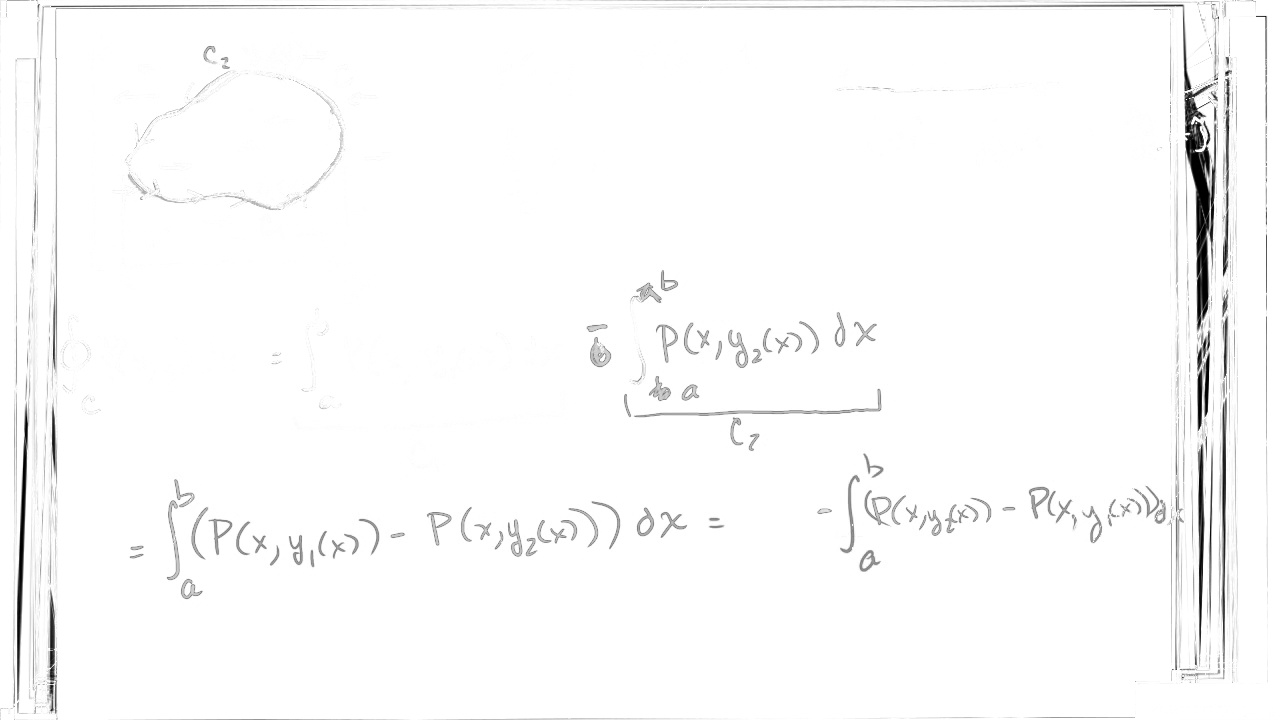 C₂
= ∫ - ∫_a^b P(x, y₂(x)) dx
C
C₂
= ∫_a^b (P(x, y₁(x)) - P(x, y₂(x))) dx = - ∫_a^b (P(x, y₂(x)) - P(x, y₁(x))) dx